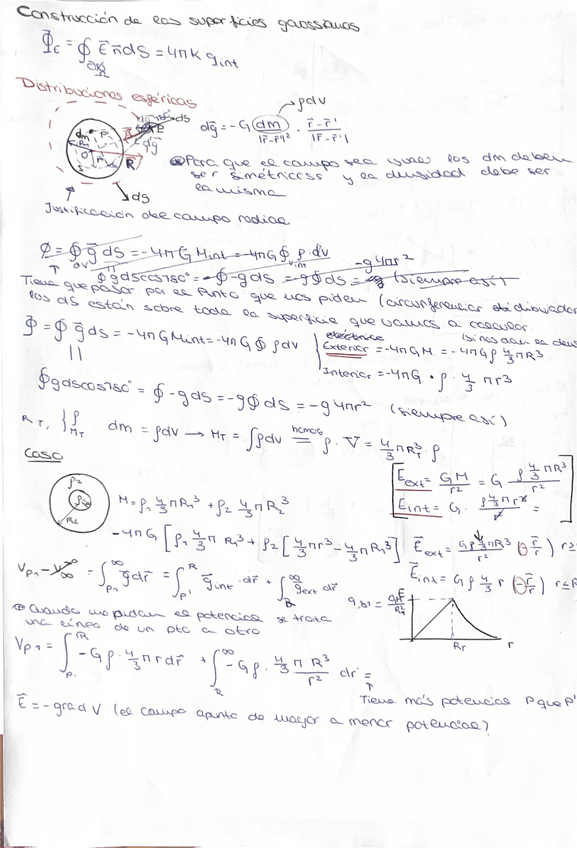 Construcción de las superficies gaussianas
Φ_E = ∮ E⃗ n⃗ dS = 4πK q_int
Distribuciones esféricas
ρdv
dg⃗ = -G dm / |r⃗-r⃗'|² · r⃗-r⃗' / |r⃗-r⃗'|
Para que el campo sea los dm deben
ser simétricos y la densidad debe ser
la misma
dS
R
Justificación del campo radial
Φ = ∮ g⃗ dS = -4πG Mint = -4πG ∮ ρ dv
-g4πr²
∮ g dS cos180° = ∮ -g dS = -g∮dS = (siempre así)
Tiene que pasar por el punto que nos piden (circunferencia dibujada
los dS están sobre toda la superficie que vamos a calcular
Φ = ∮ g⃗ dS = -4πG Mint = -4πG ∮ ρdV
Exterior = -4πGM = -4πGρ 4/3 πR³
Interior = -4πG · ρ · 4/3 πr³
∮ g dS cos180° = ∮ -g dS = -g∮dS = -g4πr² (siempre así)
R_T, { ρ M_T dm = ρdV → M_T = ∫ρdV = ρ · V = 4/3 πR_T³ · ρ
caso
ρ₂
R₂
M = ρ₁ 4/3 πR₁³ + ρ₂ 4/3 πR₂³
E_ext = GM/r² = G ρ 4/3 πR³ / r²
E_int = G · ρ 4/3 πr³ / r² =
-4πG [ρ₁ 4/3 π R₁³ + ρ₂ [4/3 πr³ - 4/3 πR₁³]
E⃗_ext = Gρ 4/3 πR³ / r² (-r⃗/r) r≥
E⃗_int = Gρ 4/3 r (-r⃗/r) r≤R
V_P1 - V∞ = ∫_P1^∞ g⃗ dr⃗ = ∫_P1^R g⃗_int · dr⃗ + ∫_R^∞ g⃗_ext dr⃗
Cuando nos pidan el potencial se traza
una línea de un pto a otro
9,81 =
R_T r
V_P1 = ∫_P^R -Gρ · 4/3 πr dr⃗ + ∫_R^∞ -Gρ · 4/3 π R³/r² dr =
Tiene más potencial P que P'
E⃗ = -grad V (el campo apunta de mayor a menor potencial?)